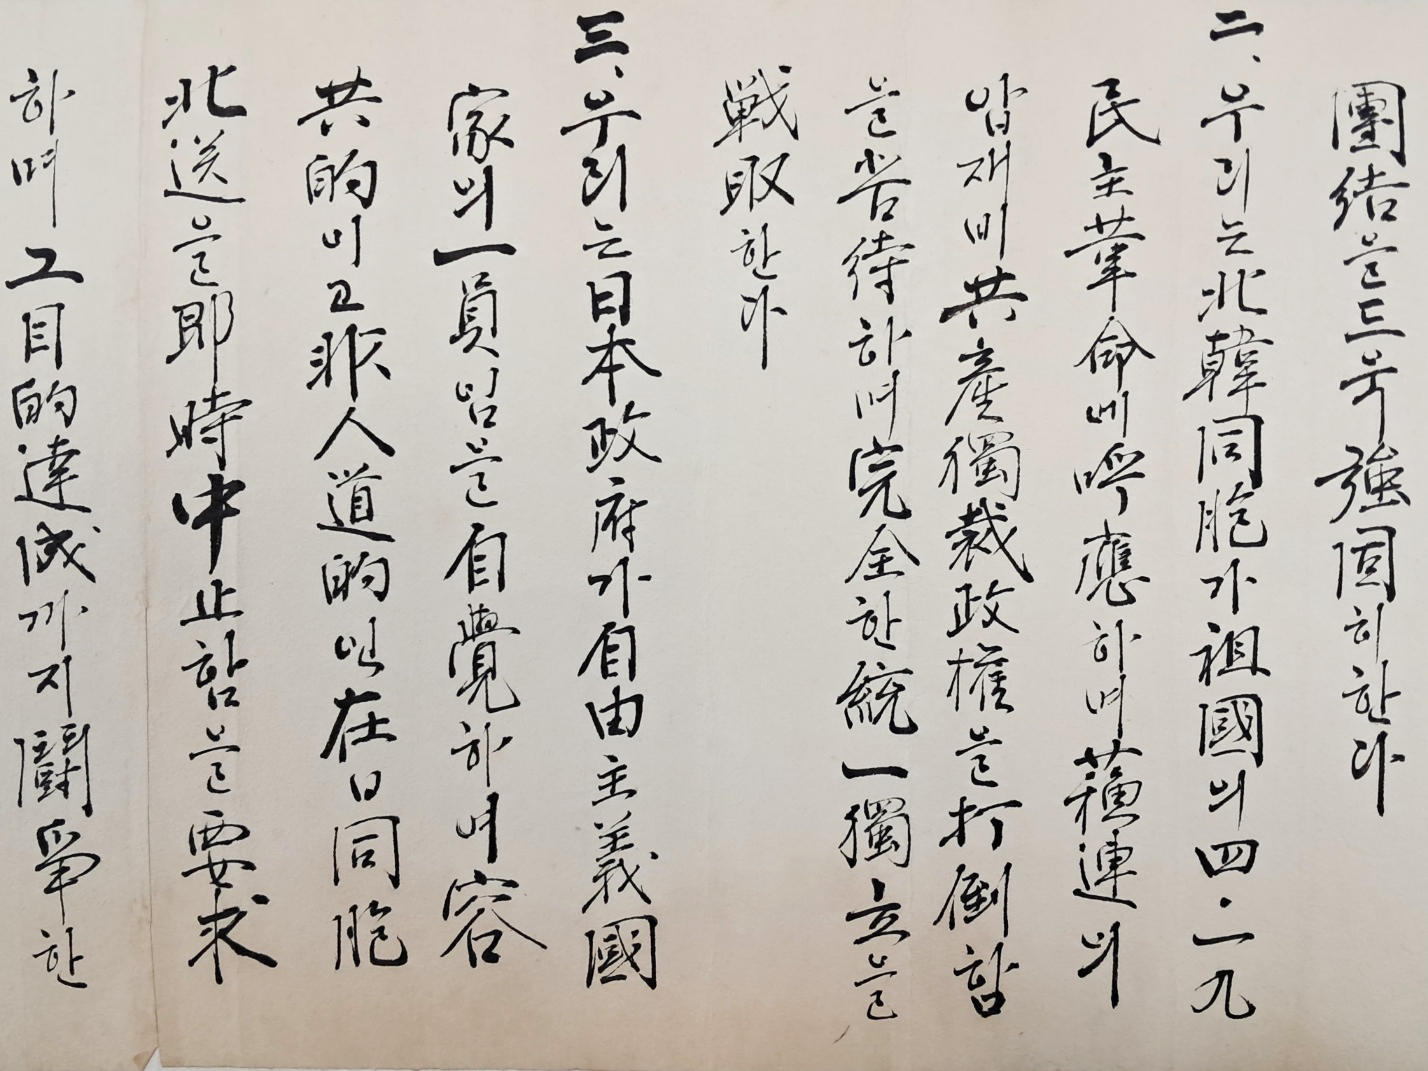 團結을 드욱 強固히 한다
二、우리는 北韓同胞가 祖國의 四·一九
民主革命에 呼應하며 蘇連의
앞재비 共産獨裁政權을 打倒함
을 苦待하며 完全한 統一獨立을
戦取한다
三、우리는 日本政府가 自由主義國
家의 一員임을 自覺하여 容
共的이고 非人道的인 在日同胞
北送을 即時中止함을 要求
하며 그 目的達成까지 鬪爭한